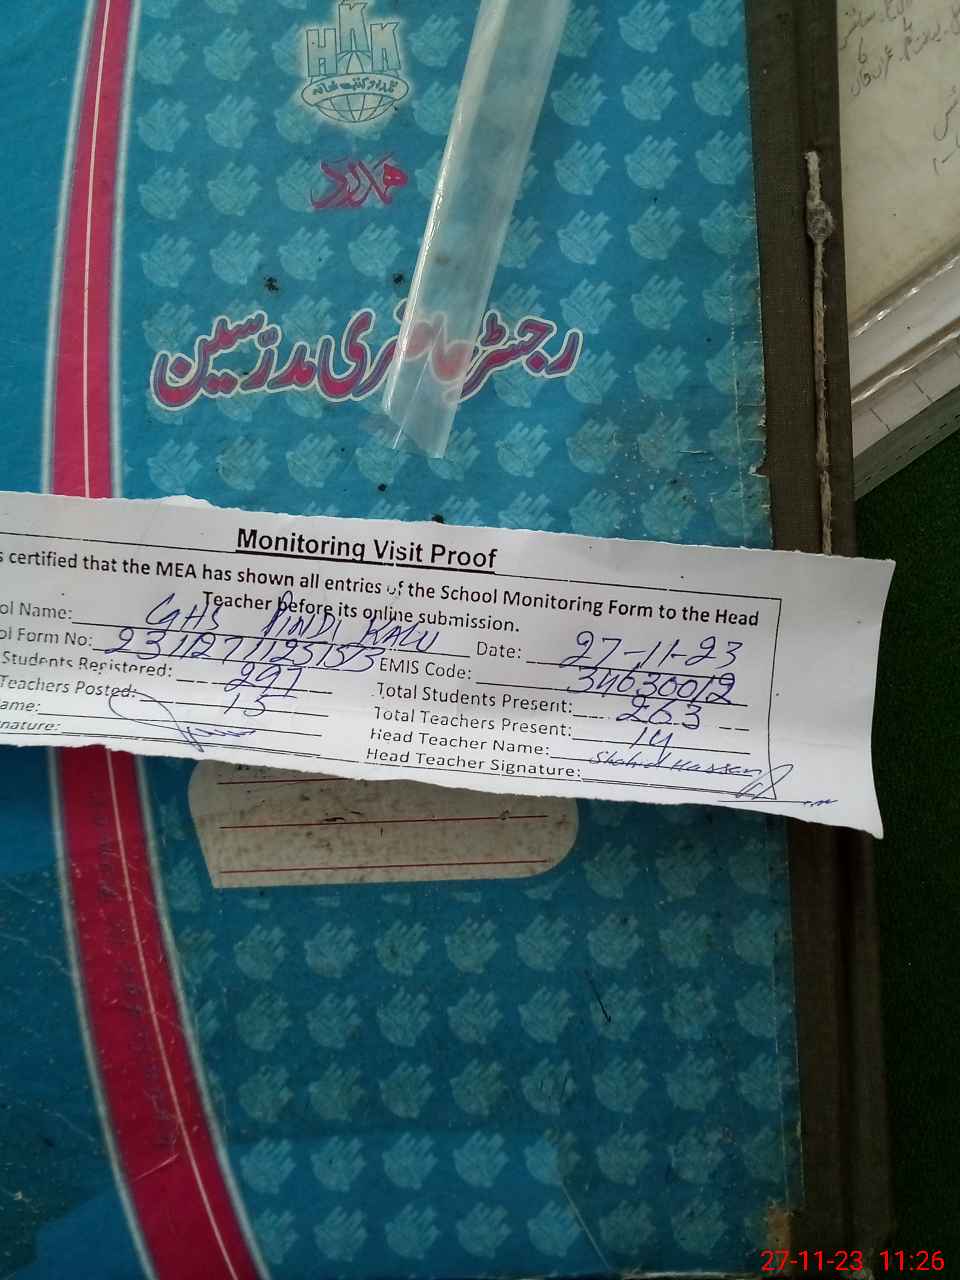 HAK
ہمدرد کتب خانہ
ہمدرد
رجسٹر حاضری مدرّسین
Monitoring Visit Proof
s certified that the MEA has shown all entries of the School Monitoring Form to the Head
Teacher before its online submission.
ol Name: GHS PINDI KALU Date: 27-11-23
ol Form No: EMIS Code: 34630012
Students Registered: 297 Total Students Present: 263
Teachers Posted: 15 Total Teachers Present: 14
ame: Head Teacher Name: Shahid Hassan
nature: Head Teacher Signature:
27-11-23 11:26